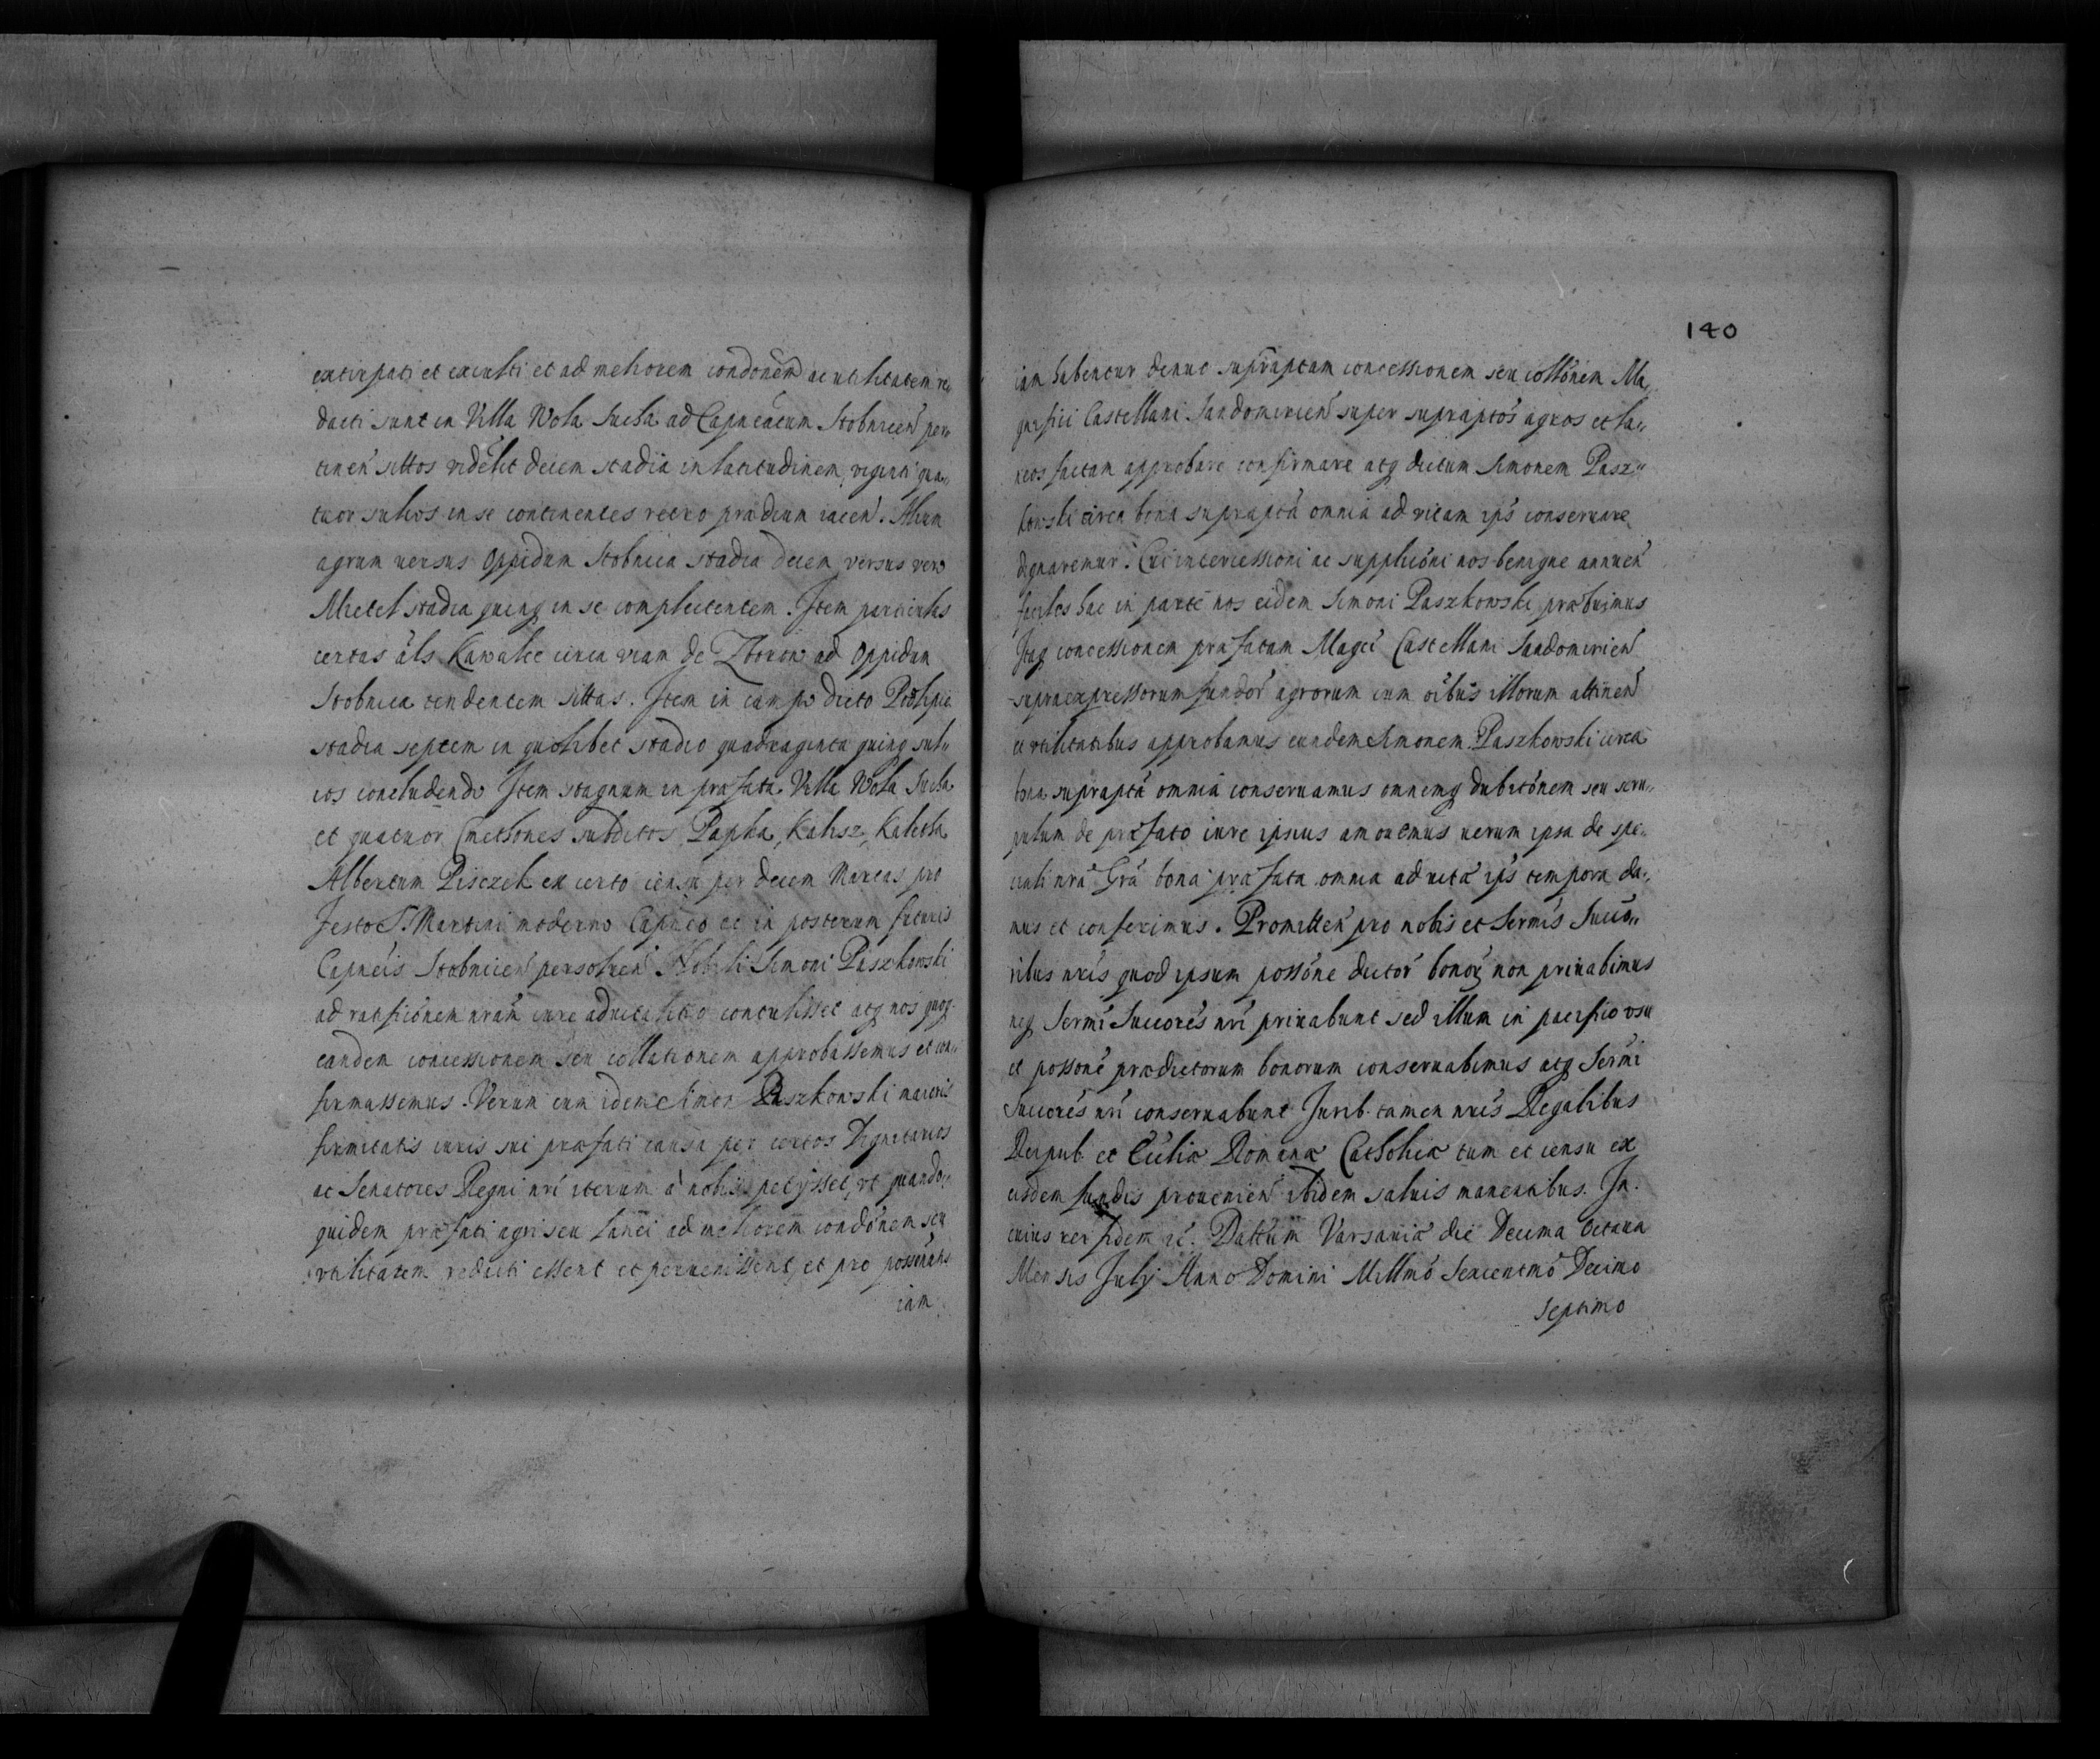 extirpati et exculti et ad meliorem condonem ac utilitatem re„
dacti sunt in Villa Wola Sucha ad Capneatum Stobnicen per„
tinen sittos videlit decem stadia in latitudinem, viginti qua„
tuor sulcos in se continentes retro prædium iacen. Alium
agrum uersus Oppidum Stobnica stadia decem versus vero
Mietel stadia quinq in se complectentem. Item particulas
certas als Kawalce circa viam de Zborow ad Oppidum
Stobnica tendentem sittas. Item in campo dicto Podlipie
stadia septem in quolibet stadio quadraginta quinq sul„
cos concludendo Item stagnum in præfata Villa Wola Sucha
et quatuor Cmethones subditos Papka, Kalisz, Kaletka
Albertum Pisczek ex certo censu per decem Marcas pro
festo S. Martini moderno Capneo et in posterum futuris
Capneis Stobnicien persoluen Nobili Simoni Paszkowski
ad ratificionem nram iure aduitalitio contulisset atq nos quoq
eandem concessionem seu collationem approbassemus et con„
firmassemus. Verum cum idem Simon Paszkowski maioris
firmitatis iuris sui præfati causa per certos Dignitarios
ac Senatores Regni nri iterum à nobis petijsset, vt quando„
quidem præfati agri seu lanei ad meliorem condonem seu
vtilitatem redacti essent et peruenissent, et pro possenatis
iam
140
iam habentur denuo supraptam concessionem seu collonem Ma„
gnifici Castellani Sandomirien super supraptos agros et la„
neos factam approbare confirmare atq dictum Simonem Pasz„
kowski circa bona suprapta omnia ad vitam ips conseruare
dignaremur. Cui intercessioni ac supplicioni nos benigne annuen
faciles hac in parte nos eidem Simoni Paszkowski præbuimus
Itaq concessionem præfatam Magci Castellani Sandomirien
supraexpressorum fundor agrorum cum oibus illorum attinen
et vtilitatibus approbamus eundem Simonem Paszkowski circa
bona suprapta omnia conseruamus omnemq dubitonem seu scru„
pulum de præfato iure ipsius amouemus uerum ipsa de spe„
ciali nra Gra bona præfata omnia ad uitæ ips tempora da„
mus et conferimus. Promitten pro nobis et Sermis Succo„
ribus nris quod ipsum possone dictor bonor non priuabimus
neq Sermi Succores nri priuabunt sed illum in pacifico vsu
et possone prædictorum bonorum conseruabimus atq Sermi
Succores nri conseruabunt Jurib. tamen nris Regalibus
Reipub. et Ecclia Romana Catholica tum et censu ex
eisdem fundis prouenien ibidem saluis manentibus. In
cuius rei fidem rc. Dattum Varsauiæ die Decima Octaua
Mensis Julij Anno Domini Millmo Sexcentmo Decimo
septimo